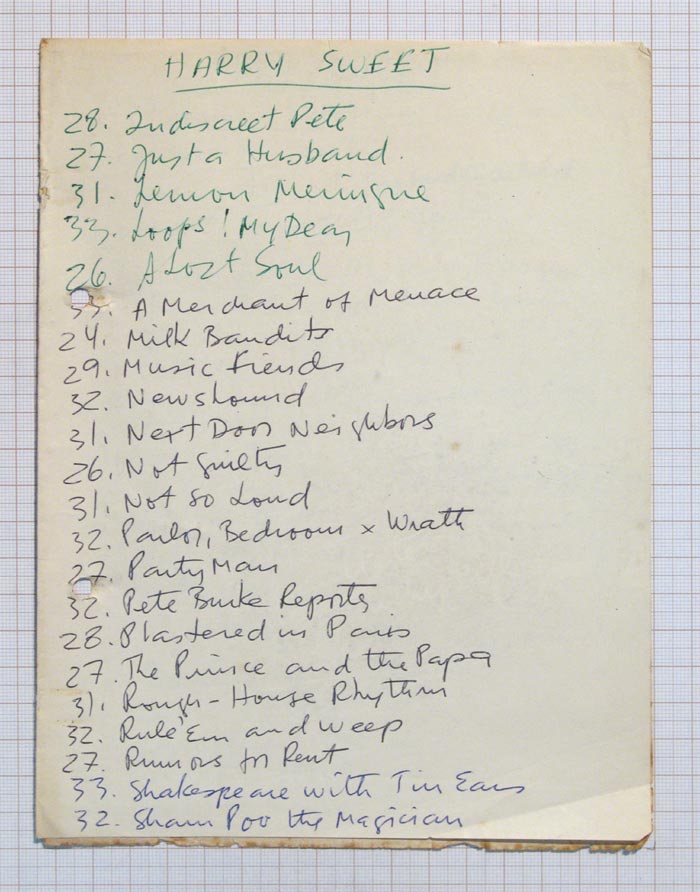 HARRY SWEET
28. Indiscreet Pete
27. Just a Husband.
31. Lemon Meringue
33. Loops! My Dear
26. A Lost Soul
33. A Merchant of Menace
24. Milk Bandits
29. Music Fiends
32. Newshound
31. Next Door Neighbors
26. Not Guilty
31. Not So Loud
32. Parlor, Bedroom x Wrath
27. Party Man
32. Pete Burke Reporter
28. Plastered in Paris
27. The Prince and the Papa
31. Rough-House Rhythm
32. Rule 'Em and Weep
27. Rumors for Rent
33. Shakespeare with Tin Ears
32. Sham Poo the Magician